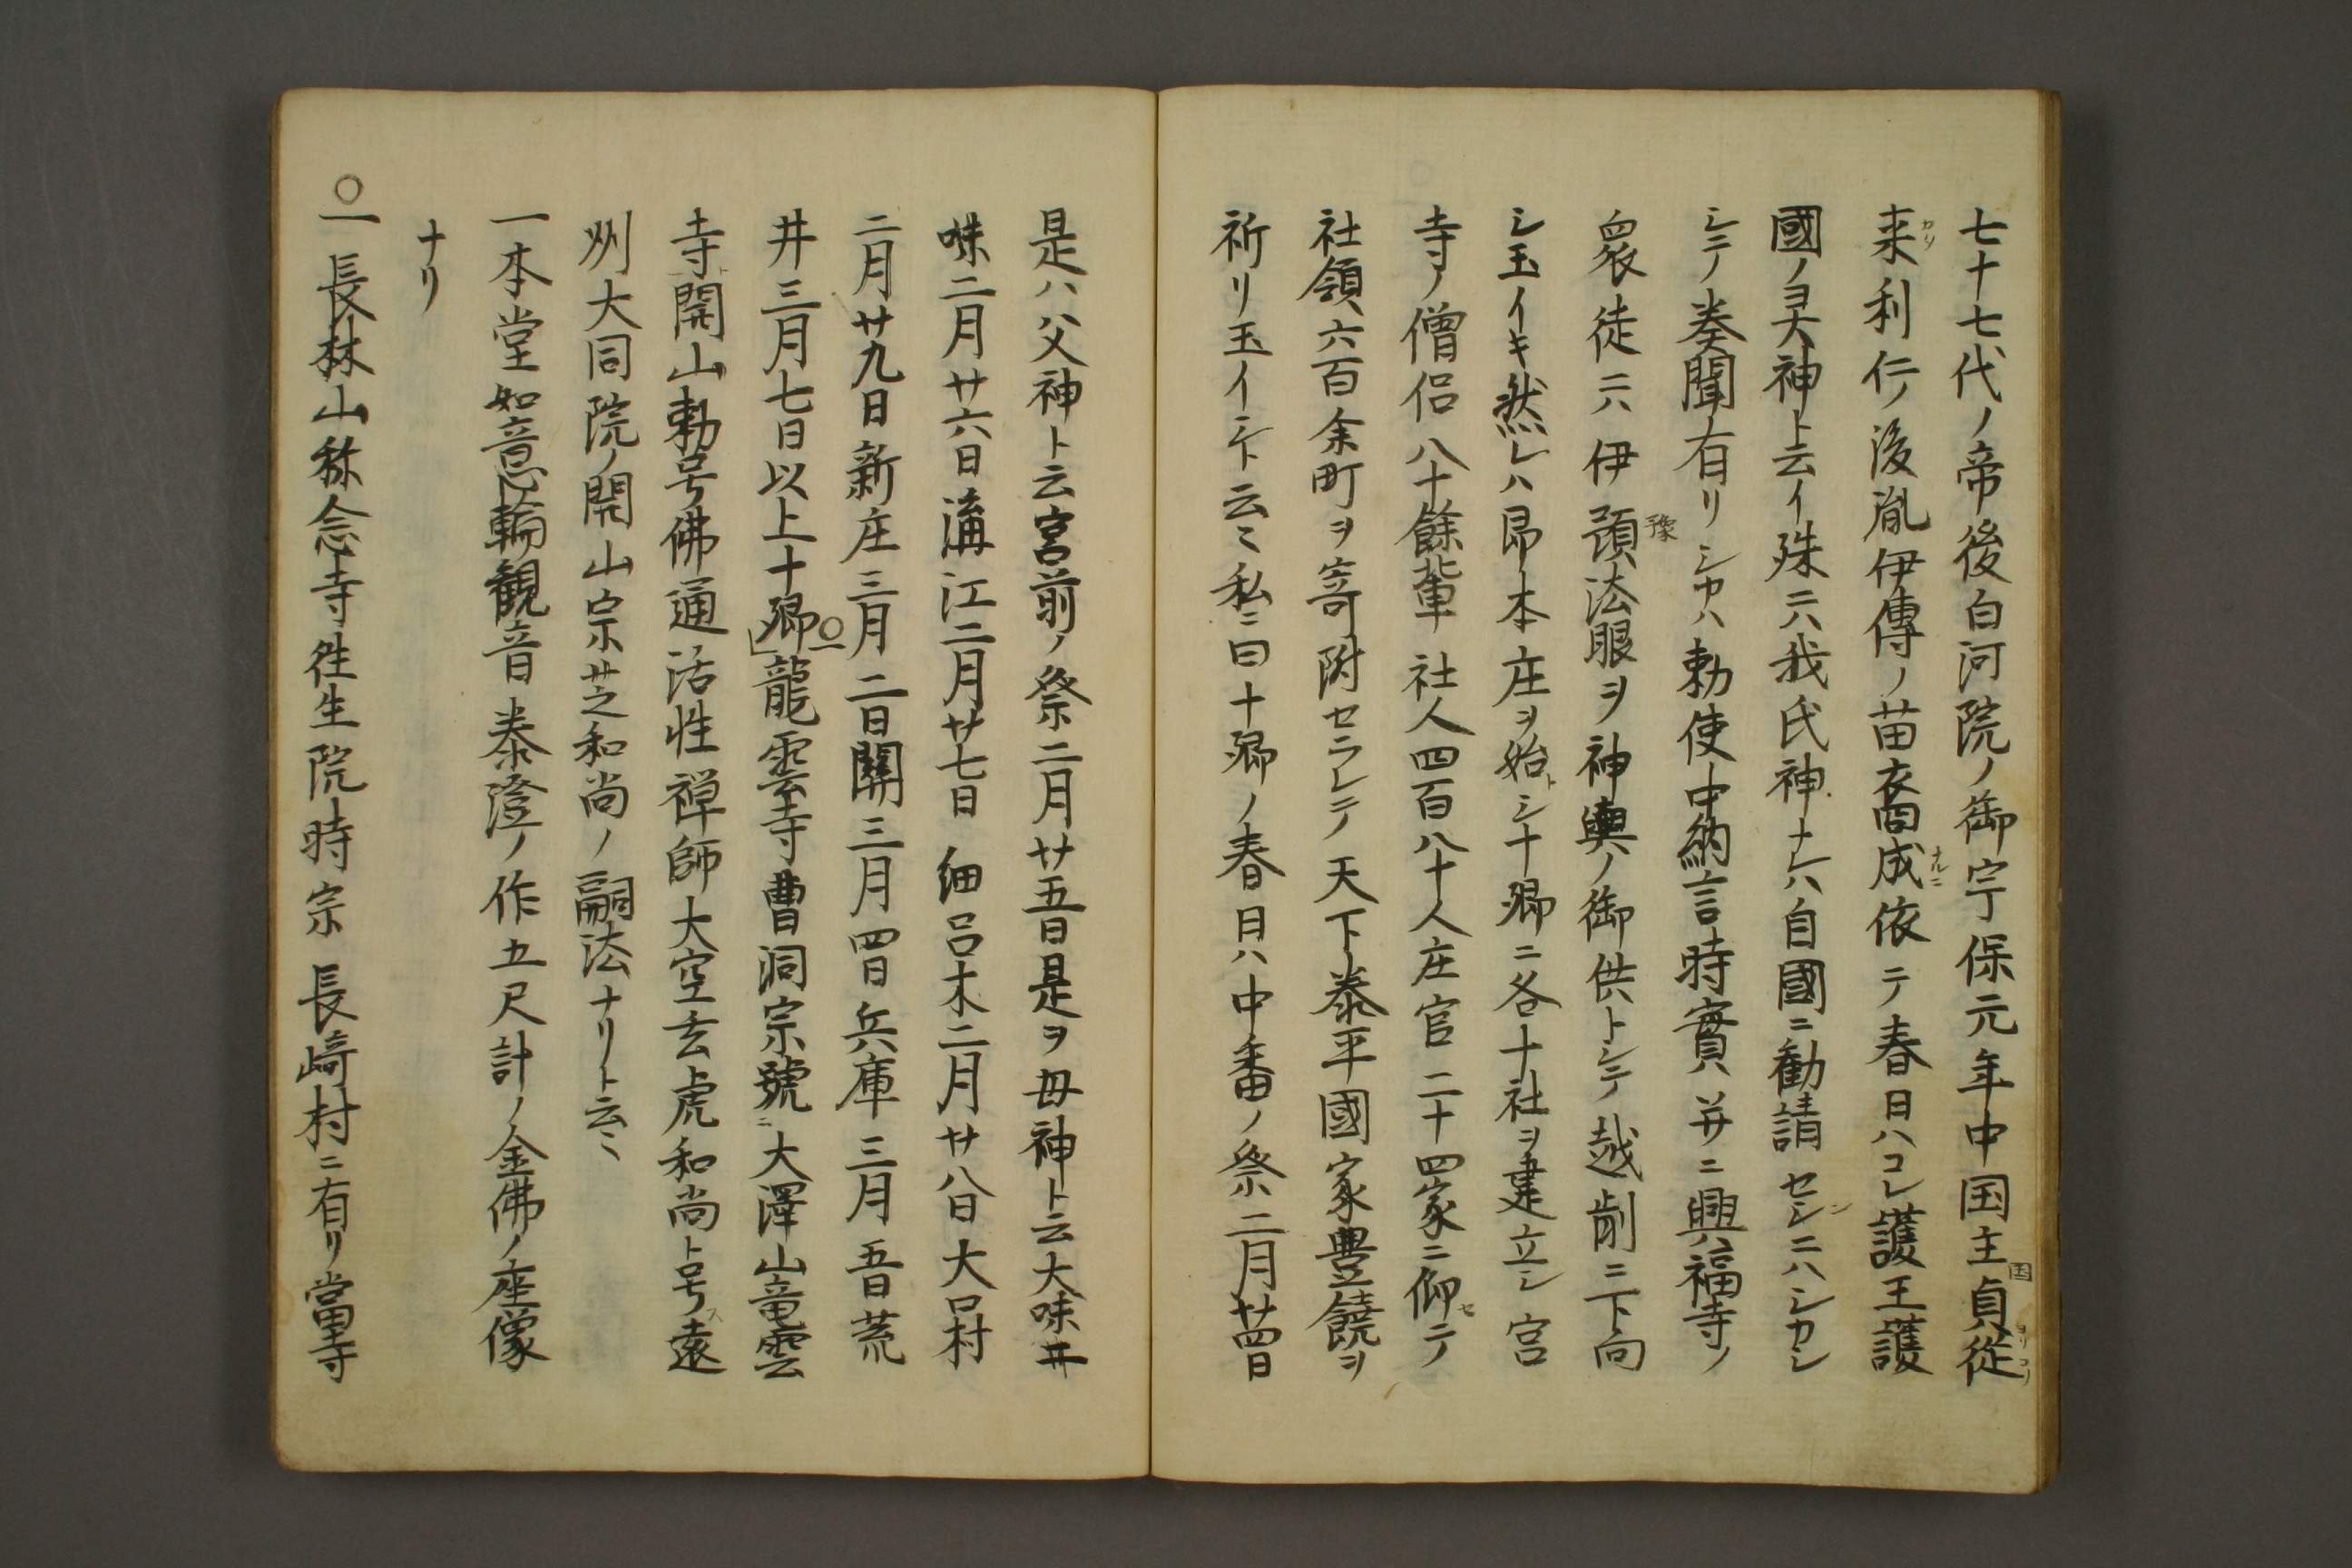 七十七代ノ帝後白河院ノ御宇保元年中国主貞従
来利仁ノ後胤伊傳ノ苗裔成依テ春日ハコレ護王護
國ノ㚑神ト云イ殊ニハ我氏神ナレハ自國ニ勧請センニハシカシ
シテノ奏聞有リシカハ勅使中納言時實并ニ興福寺ノ
衆徒ニハ伊預法眼ヲ神輿ノ御供トシテ越前ニ下向
シ玉イキ然レハ即本庄ヲ始トシ十郷ニ各十社ヲ建立シ宮
寺ノ僧侶八十餘輩社人四百八十人庄官二十四家ニ仰セテ
社領六百余町ヲ寄附セラレテ天下泰平國家豊饒ヲ
祈リ玉イシト云ミ私ニ曰十郷ノ春日ハ中番ノ祭二月廿四日
是ハ父神ト云宮前ノ祭二月廿五日是ヲ母神ト云大味井
味二月廿六日溝江二月廿七日細呂木二月廿八日大口村
二月廿九日新庄三月二日關三月四日兵庫三月五日荒
井三月七日以上十郷」〇一龍雲寺曹洞宗號ニ大澤山竜雲
寺開山勅号佛通活性禅師大空玄虎和尚ト号ス遠
州大同院ノ開山宗芝和尚ノ嗣法ナリト云ミ
一本堂如意輪観音泰澄ノ作五尺計ノ金佛ノ座像
ナリ
〇一長林山称念寺往生院時宗長崎村ニ有リ當寺